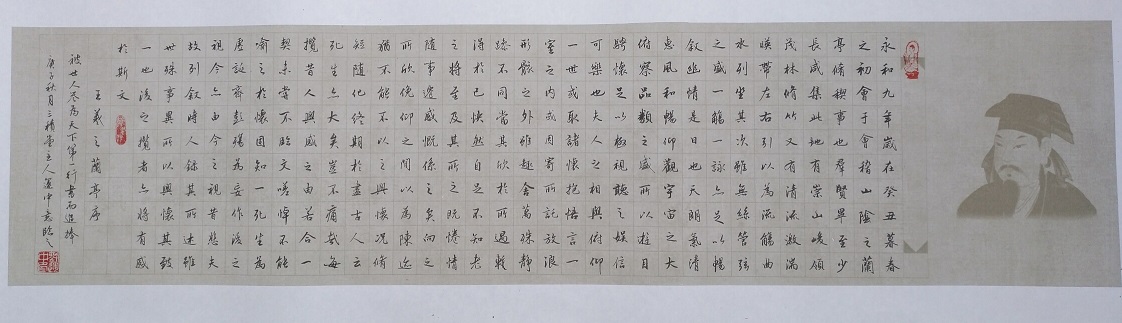 永和九年歲在癸丑暮春
之初會于會稽山陰之蘭
亭脩稧事也群賢畢至少
長咸集此地有崇山峻領
茂林脩竹又有清流激湍
暎帶左右引以為流觴曲
水列坐其次雖無絲管弦
之盛一觴一詠亦足以暢
敘幽情是日也天朗氣清
惠風和暢仰觀宇宙之大
俯察品類之盛所以遊目
騁懷足以極視聽之娛信
可樂也夫人之相與俯仰
一世或取諸懷抱悟言一
室之內或因寄所託放浪
形骸之外雖趣舍萬殊靜
躁不同當其欣於所遇輒
得於己怏然自足不知老
之將至及其所之既惓情
隨事遷感慨係之矣向之
所欣俛仰之間以為陳迹
猶不能不以之興懷況脩
短隨化終期於盡古人云
死生亦大矣豈不痛哉每
攬昔人興感之由若合一
契未嘗不臨文嗟悼不能
喻之於懷固知一死生為
虛誕齊彭殤為妄作後之
視今亦由今之視昔悲夫
故列敘時人錄其所述雖
世殊事異所以興懷其致
一也後之攬者亦將有感
於斯文
王羲之蘭亭序
被世人尽為天下第一行書而追捧
庚子秋月